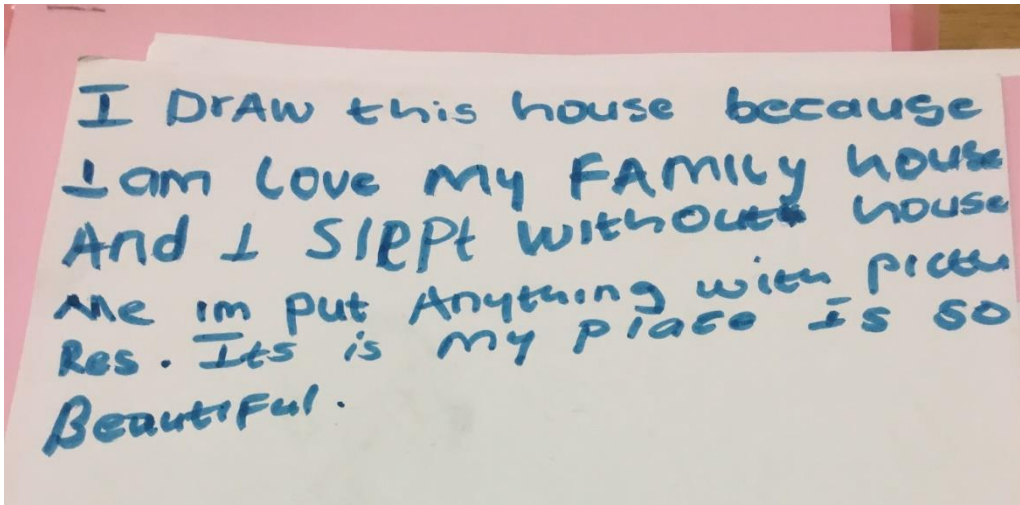 I DrAW this house because
I am Love my FAMILY house
And I Slept without house
Me im put Anything with pictu
Res. Its is my place Is so
Beautiful.